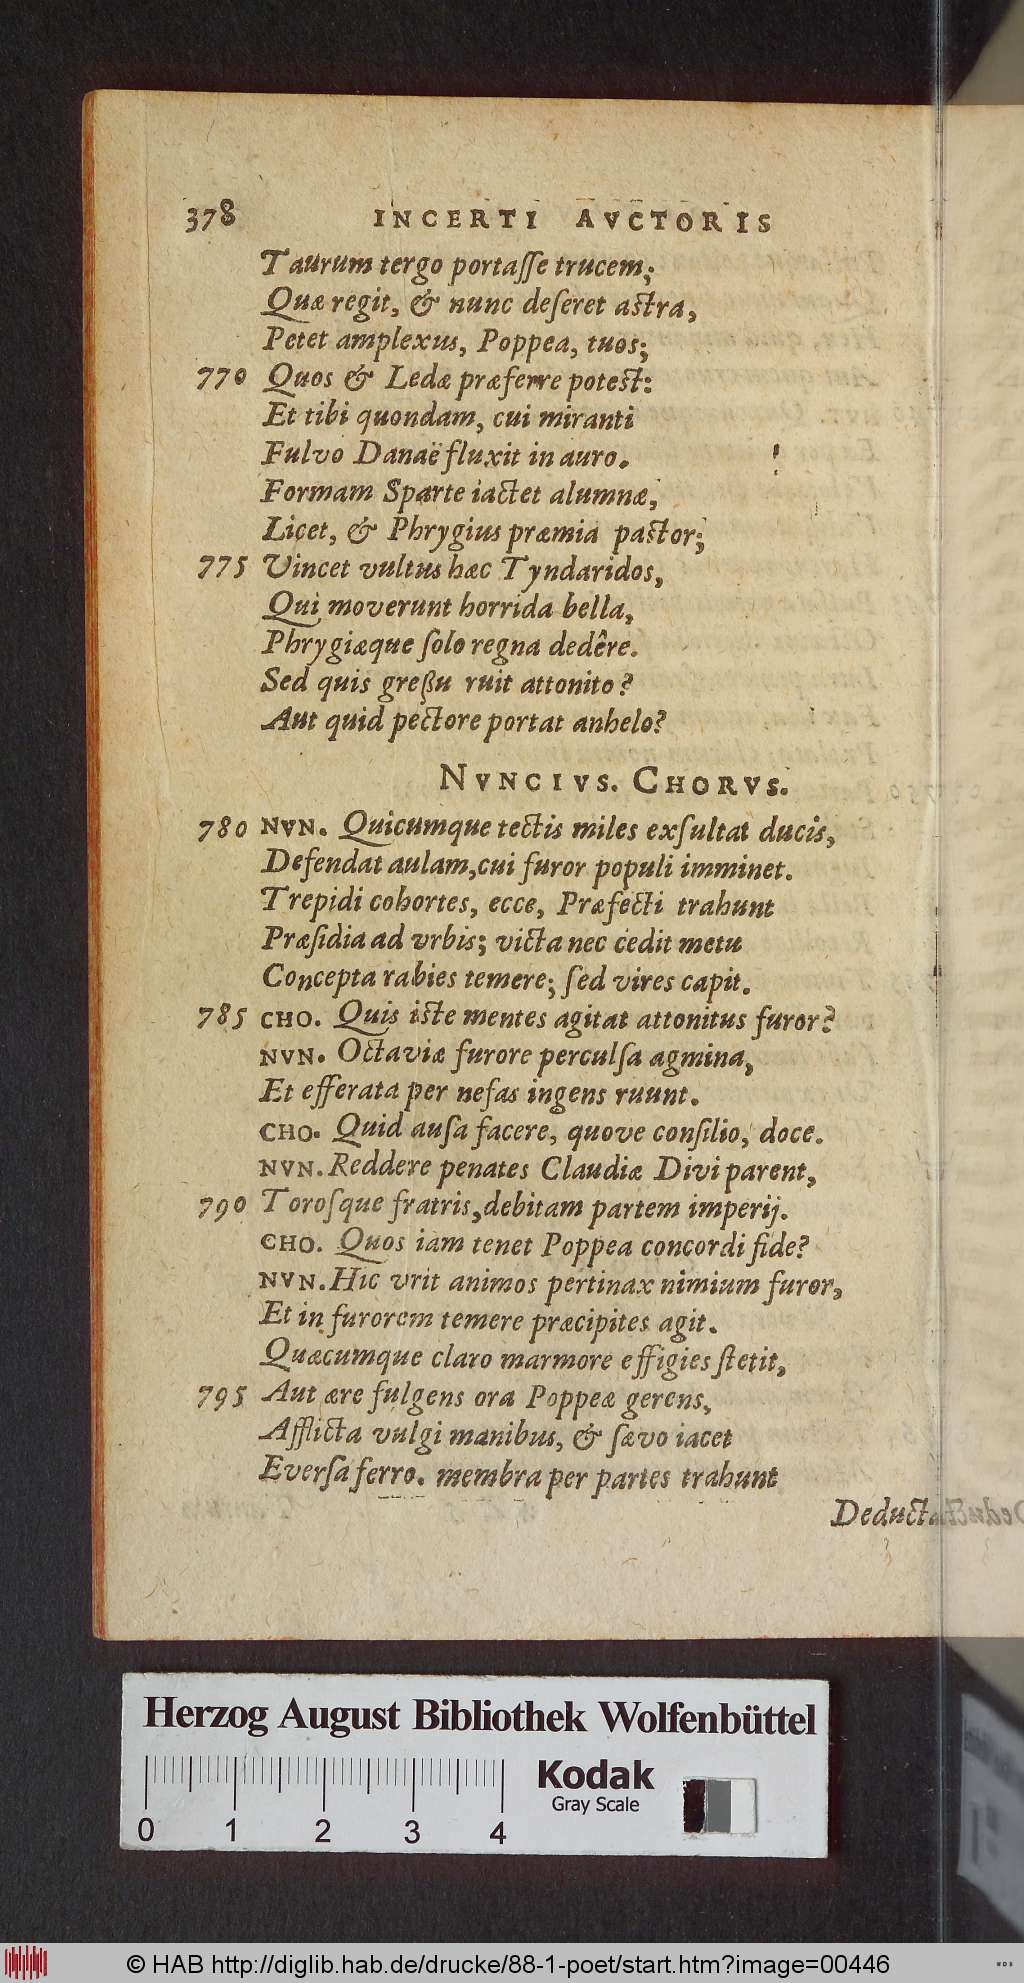 378 INCERTI AVCTORIS
Taurum tergo portaſſe trucem;
Quæ regit, & nunc deſeret astra,
Petet amplexus, Poppea, tuos;
770 Quos & Ledæ præferre potest:
Et tibi quondam, cui miranti
Fulvo Danaë fluxit in auro.
Formam Sparte iactet alumnæ,
Licet, & Phrygius præmia pastor;
775 Vincet vultus hæc Tyndaridos,
Qui moverunt horrida bella,
Phrygiæque ſolo regna dedêre.
Sed quis greßu ruit attonito?
Aut quid pectore portat anhelo?
NVNCIVS. CHORVS.
780 NVN. Quicumque tectis miles exſultat ducis,
Defendat aulam, cui furor populi imminet.
Trepidi cohortes, ecce, Præfecti trahunt
Præſidia ad vrbis; victa nec cedit metu
Concepta rabies temere; ſed vires capit.
785 CHO. Quis iste mentes agitat attonitus furor?
NVN. Octaviæ furore perculſa agmina,
Et efferata per nefas ingens ruunt.
CHO. Quid auſa facere, quove conſilio, doce.
NVN. Reddere penates Claudiæ Divi parent,
790 Toroſque fratris, debitam partem imperij.
CHO. Quos iam tenet Poppea concordi fide?
NVN. Hic vrit animos pertinax nimium furor,
Et in furorem temere præcipites agit.
Quæcumque claro marmore effigies ſtetit,
795 Aut ære fulgens ora Poppeæ gerens,
Afflicta vulgi manibus, & ſævo iacet
Everſa ferro. membra per partes trahunt
Deducta
Herzog August Bibliothek Wolfenbüttel
Kodak
Gray Scale
0 1 2 3 4
© HAB http://diglib.hab.de/drucke/88-1-poet/start.htm?image=00446